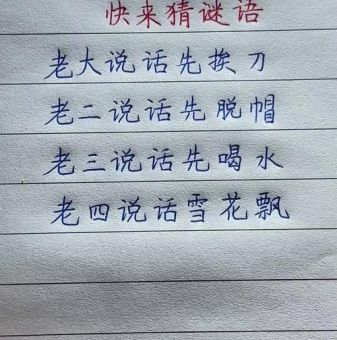 快来猜谜语
老大说话先挨刀
老二说话先脱帽
老三说话先喝水
老四说话雪花飘